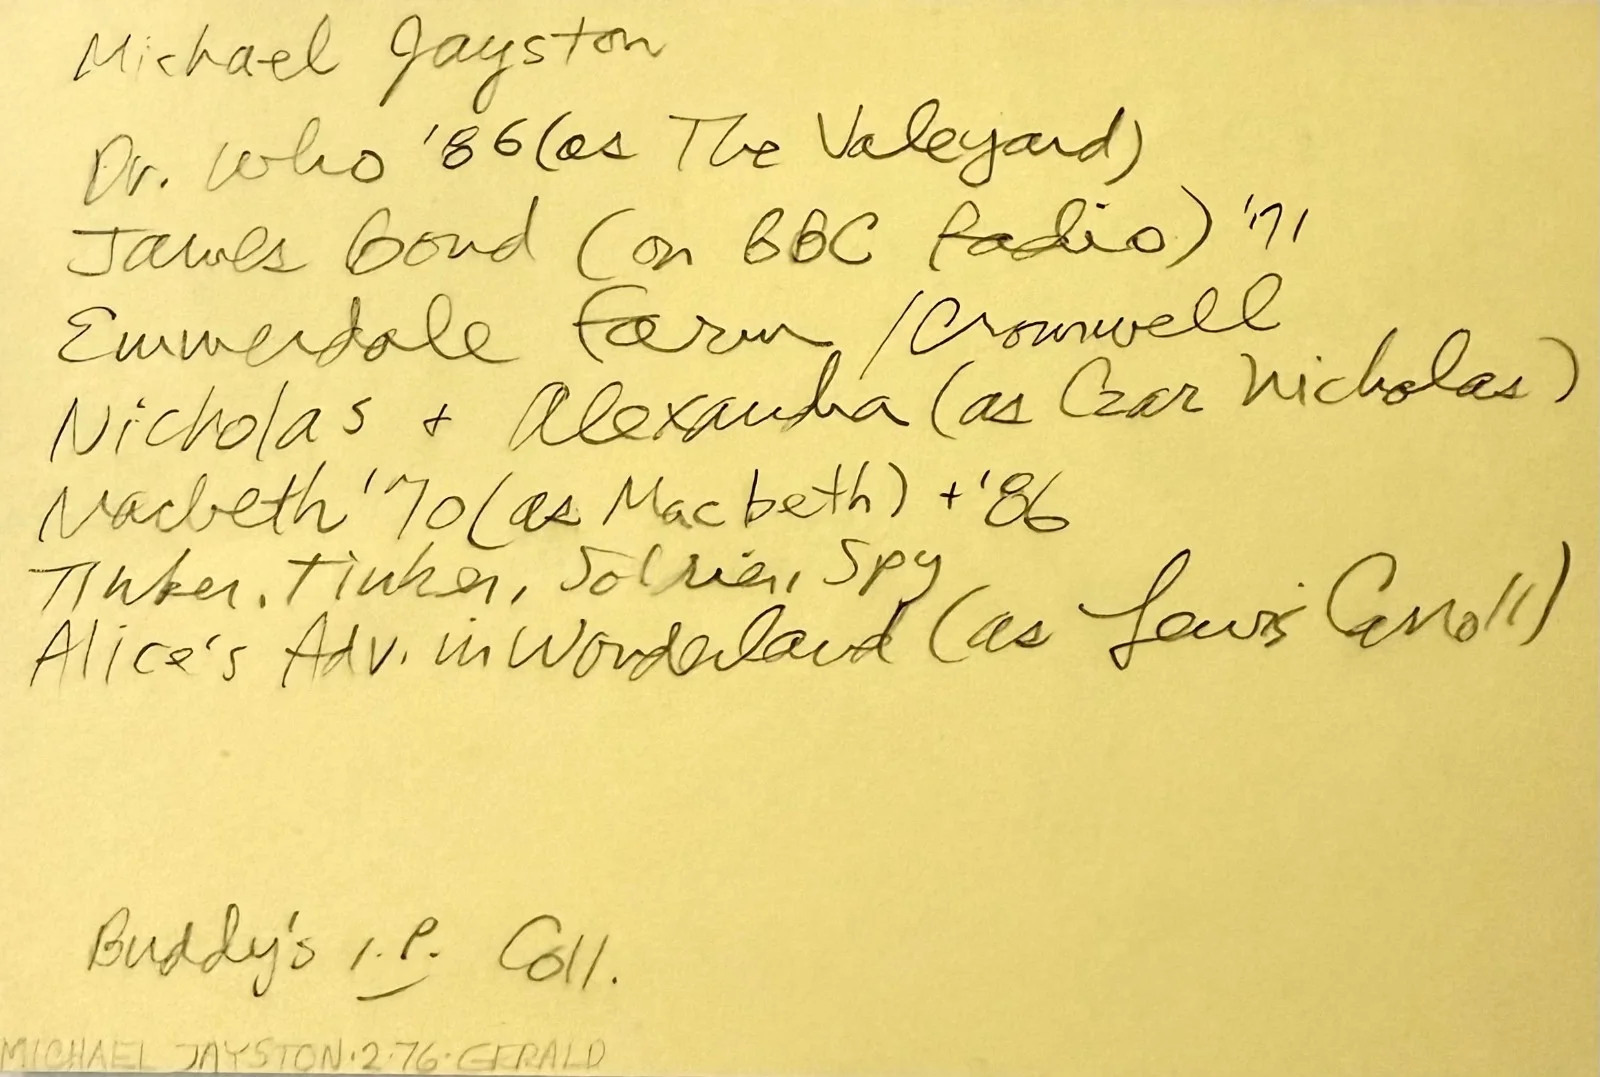 Michael Jayston
Dr. Who '86 (as The Valeyard)
James Bond (on BBC Radio) '71
Emmerdale Farm / Cromwell
Nicholas + Alexandra (as Czar Nicholas)
Macbeth '70 (as Macbeth) + '86
Tinker, Tinker, Soldier, Spy
Alice's Adv. in Wonderland (as Lewis Carroll)
Buddy's I.P. Coll.
MICHAEL JAYSTON·2·76·GERALD